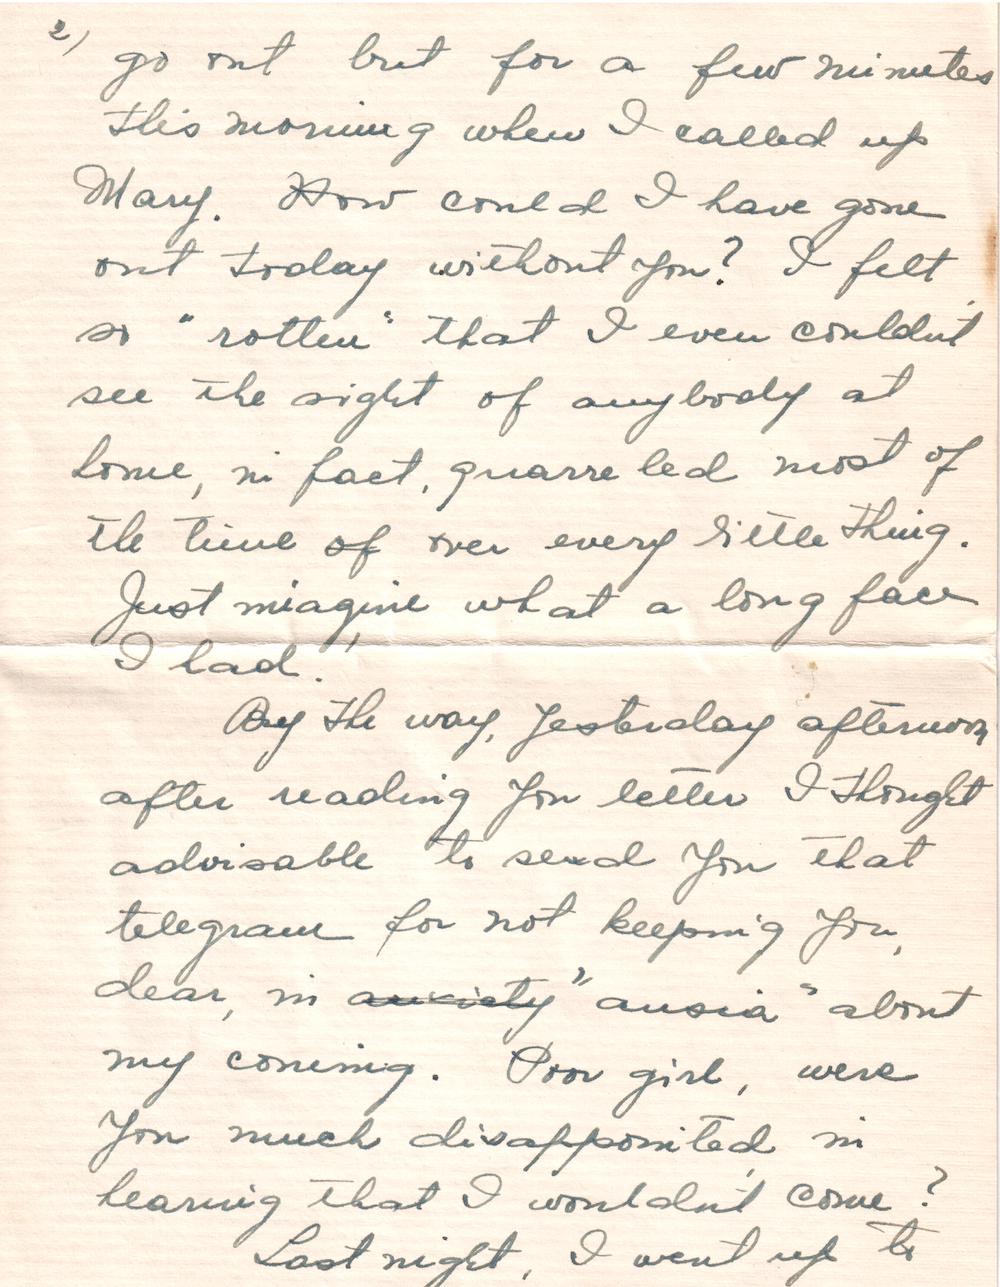 2)
go out but for a few minutes
this morning when I called up
Mary. How could I have gone
out today without you? I felt
so "rotten" that I even couldn't
see the sight of anybody at
home, in fact, quarreled most of
the time of over every little thing.
Just imagine what a long face
I had!
By the way, yesterday afternoon,
after reading you letter I thought
advisable to send you that
telegram for not keeping you,
dear, in anxiety "ansia" about
my coming. Poor girl, were
you much disappointed in
hearing that I wouldn't come?
Last night, I went up to